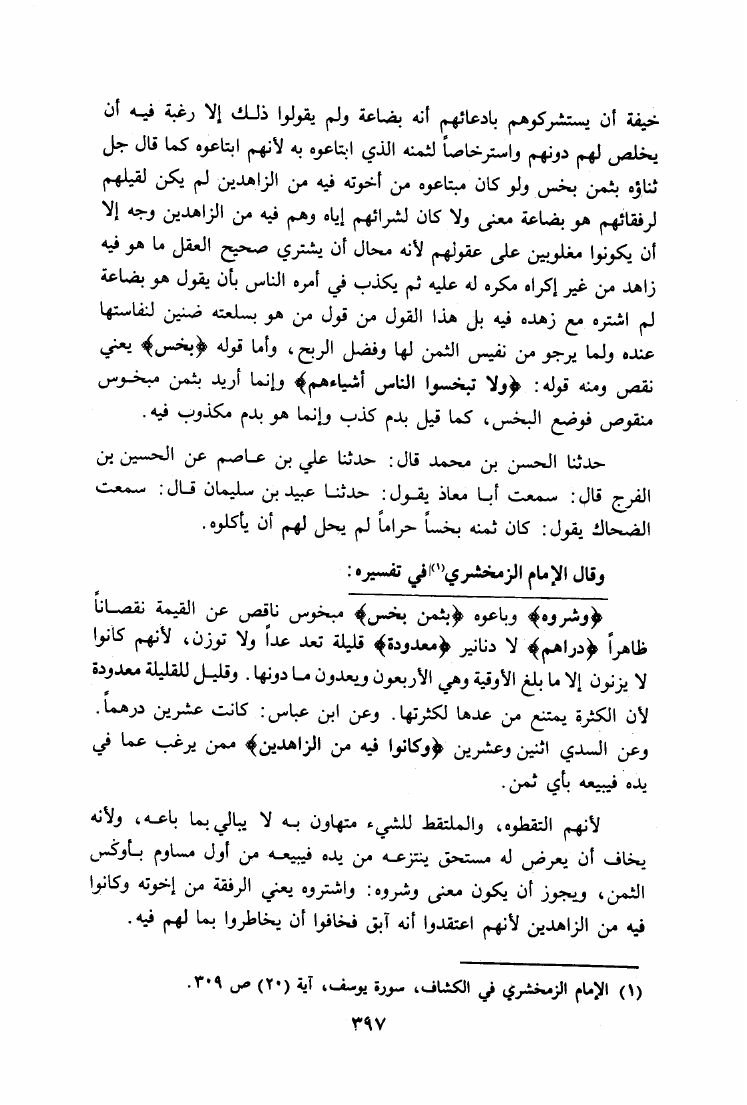 خيفة أن يستشركوهم بادعائهم أنه بضاعة ولم يقولوا ذلك إلا رغبة فيه أن
يخلص لهم دونهم واسترخاصاً لثمنه الذي ابتاعوه به لأنهم ابتاعوه كما قال جل
ثناؤه بثمن بخس ولو كان مبتاعوه من أخوته فيه من الزاهدين لم يكن لقيلهم
لرفقائهم هو بضاعة معنى ولا كان لشرائهم إياه وهم فيه من الزاهدين وجه إلا
أن يكونوا مغلوبين على عقولهم لأنه محال أن يشتري صحيح العقل ما هو فيه
زاهد من غير إكراه مكره له عليه ثم يكذب في أمره الناس بأن يقول هو بضاعة
لم اشتره مع زهده فيه بل هذا القول من قول من هو بسلعته ضنين لنفاستها
عنده ولما يرجو من نفيس الثمن لها وفضل الربح، وأما قوله ﴿بخس﴾ يعني
نقص ومنه قوله: ﴿ولا تبخسوا الناس أشياءهم﴾ وإنما أريد بثمن مبخوس
منقوص فوضع البخس، كما قيل بدم كذب وإنما هو بدم مكذوب فيه.
حدثنا الحسن بن محمد قال: حدثنا علي بن عاصم عن الحسين بن
الفرج قال: سمعت أبا معاذ يقول: حدثنا عبيد بن سليمان قال: سمعت
الضحاك يقول: كان ثمنه بخساً حراماً لم يحل لهم أن يأكلوه.
وقال الإمام الزمخشري(١) في تفسيره:
﴿وشروه﴾ وباعوه ﴿بثمن بخس﴾ مبخوس ناقص عن القيمة نقصاناً
ظاهراً ﴿دراهم﴾ لا دنانير ﴿معدودة﴾ قليلة تعد عداً ولا توزن، لأنهم كانوا
لا يزنون إلا ما بلغ الأوقية وهي الأربعون ويعدون ما دونها. وقليل للقليلة معدودة
لأن الكثرة يمتنع من عدها لكثرتها. وعن ابن عباس: كانت عشرين درهماً.
وعن السدي اثنين وعشرين ﴿وكانوا فيه من الزاهدين﴾ ممن يرغب عما في
يده فيبيعه بأي ثمن.
لأنهم التقطوه، والملتقط للشيء متهاون به لا يبالي بما باعه، ولأنه
يخاف أن يعرض له مستحق ينتزعه من يده فيبيعه من أول مساوم بأوكس
الثمن، ويجوز أن يكون معنى وشروه: واشتروه يعني الرفقة من إخوته وكانوا
فيه من الزاهدين لأنهم اعتقدوا أنه آبق فخافوا أن يخاطروا بما لهم فيه.
(١) الإمام الزمخشري في الكشاف، سورة يوسف، آية (٢٠) ص ٣٠٩.
٣٩٧